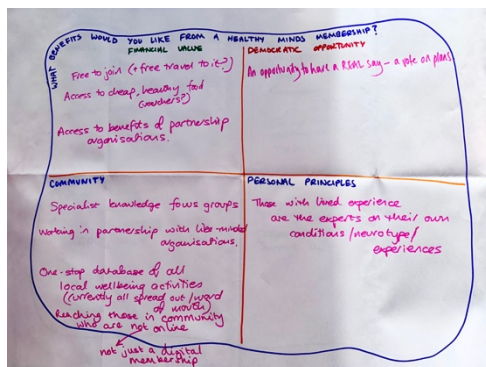 WHAT BENEFITS WOULD YOU LIKE FROM A HEALTHY MINDS MEMBERSHIP?
FINANCIAL VALUE
Free to join (+ free travel to it?)
Access to cheap, healthy food
(vouchers?)
Access to benefits of partnership
organisations.
DEMOCRATIC OPPORTUNITY
An opportunity to have a REAL say – a vote on plans
COMMUNITY
Specialist knowledge focus groups
Working in partnership with like-minded
organisations.
One-stop database of all
local wellbeing activities
(currently all spread out/word
of mouth)
Reaching those in community
who are not online
not just a digital
membership
PERSONAL PRINCIPLES
Those with lived experience
are the experts on their own
conditions/neurotype/
experiences